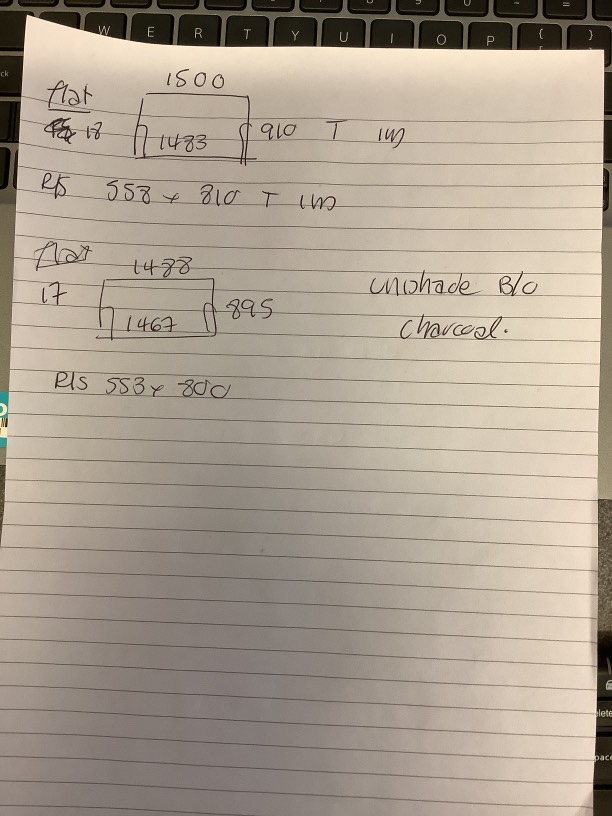 W E R T Y U I O P { }
1500
flat
18 1483 910 T IW
R/S 558 x 810 T IW
flat
1488
17 1467 895
Unishade B/O
Charcoal.
R/S 553 x 800